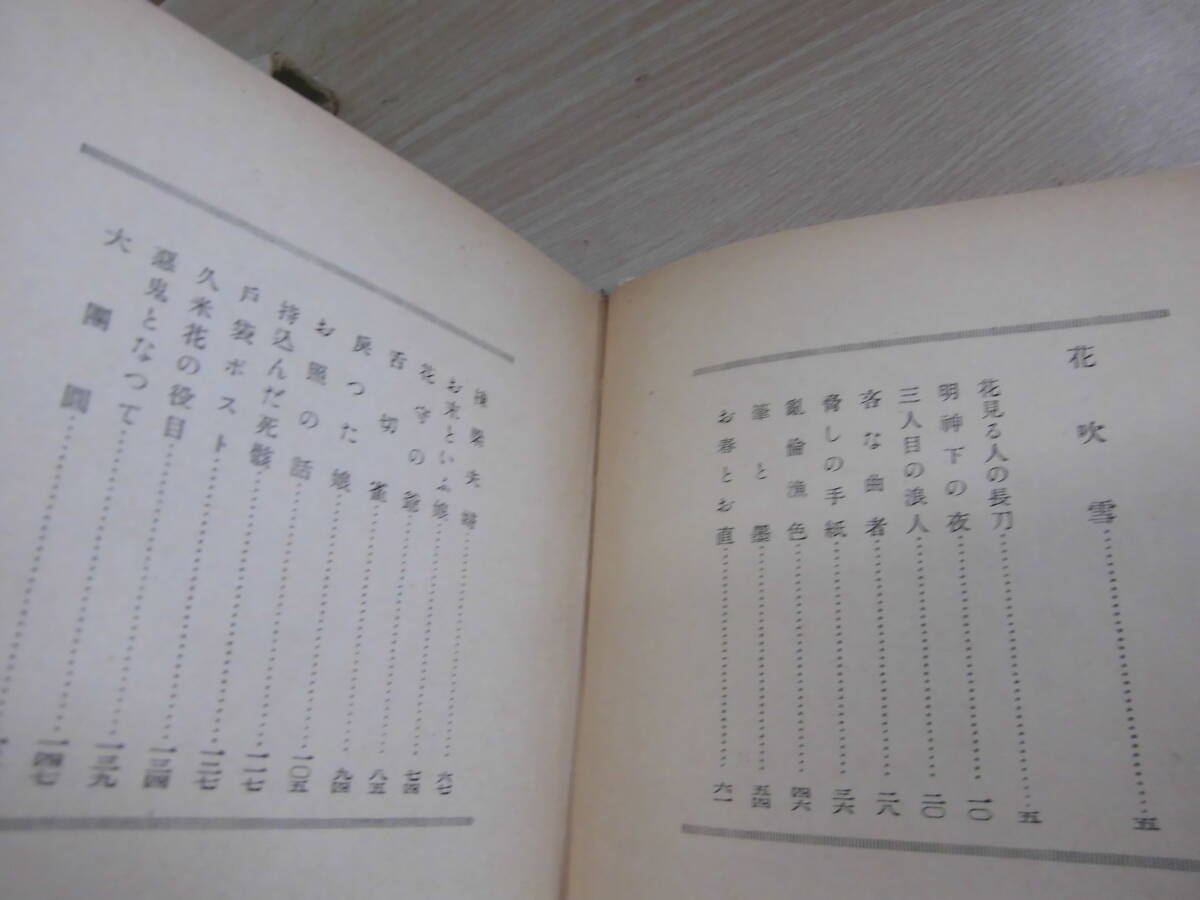 花吹雪……五
花見る人の長刀……五
明神下の夜……一〇
三人目の浪人……二〇
吝な曲者……二八
脅しの手紙……三六
亂倫漁色……四六
筆と墨……五四
お春とお直……六一
棟梁夫婦……六七
お末といふ娘……七四
花守の爺……八五
舌切雀……九四
戻つた娘……一〇五
お照の話……一一七
持込んだ死骸……一二七
戸袋ポスト……一三四
久米花の役目……一三九
惡鬼となつて……一四七
大團圓